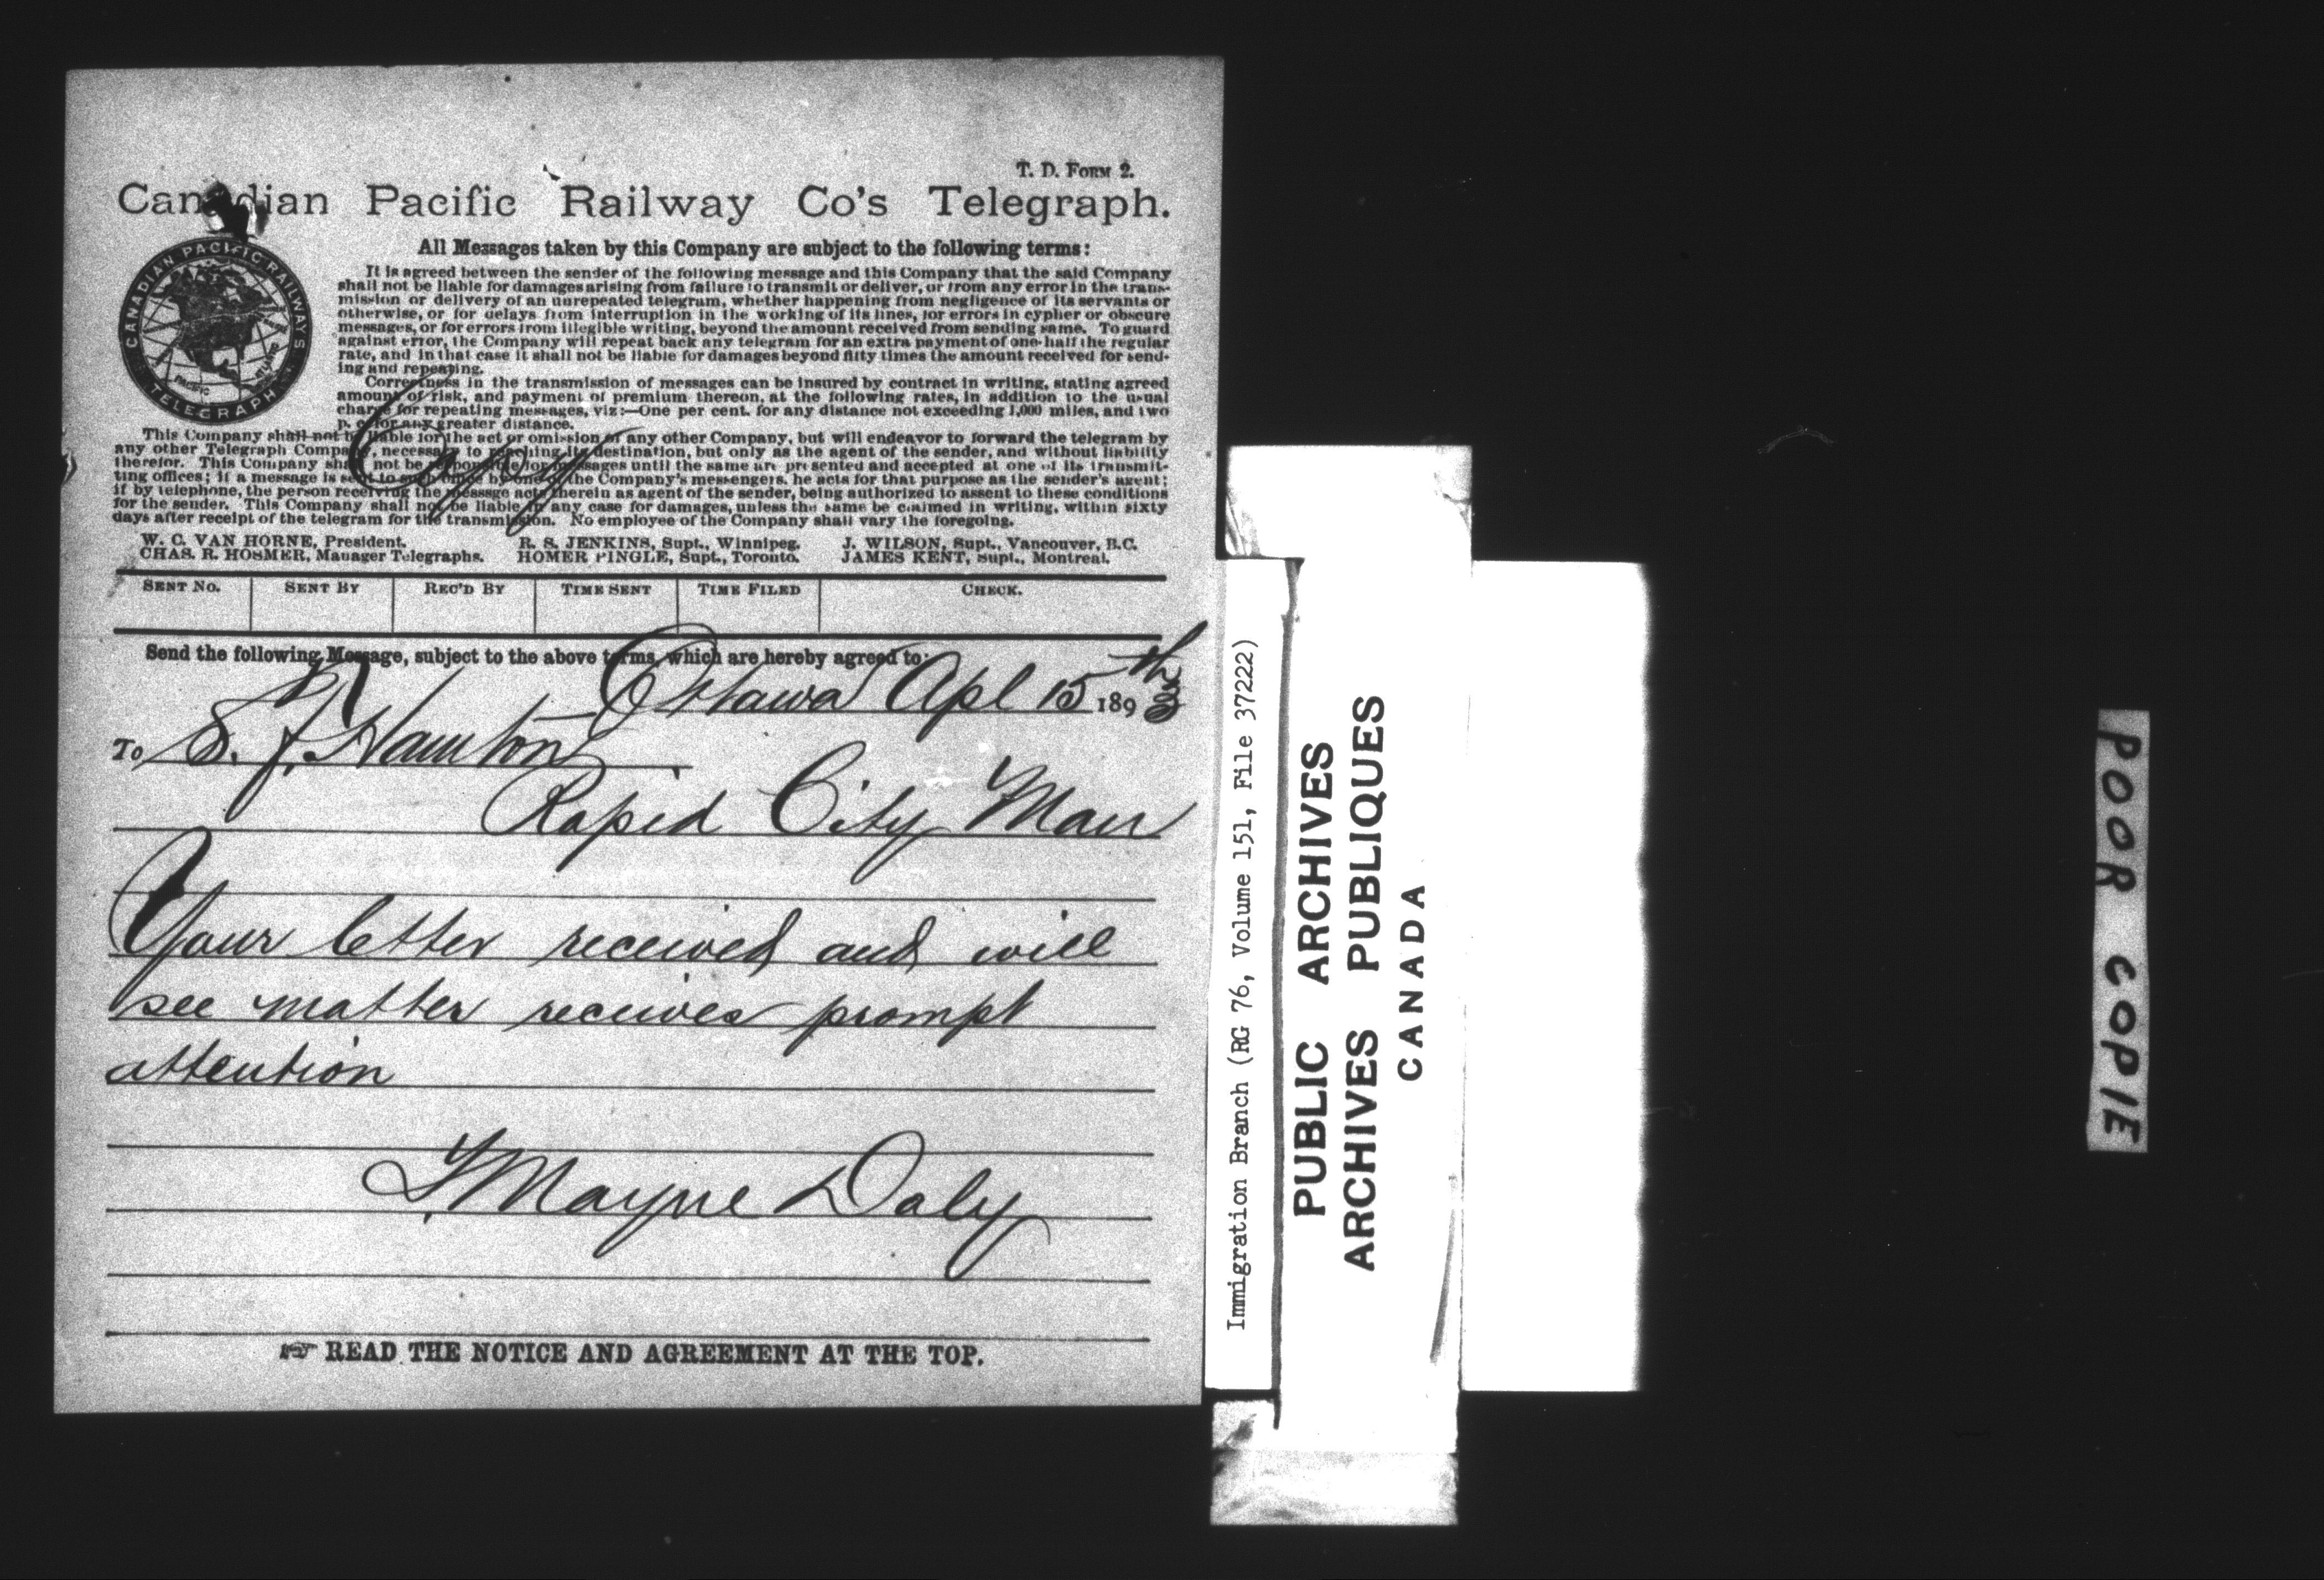 T. D. FORM 2.
Canadian Pacific Railway Co's Telegraph.
CANADIAN PACIFIC RAILWAY'S
TELEGRAPH
PACIFIC
All Messages taken by this Company are subject to the following terms:
It is agreed between the sender of the following message and this Company that the said Company
shall not be liable for damages arising from failure to transmit or deliver, or from any error in the trans-
mission or delivery of an unrepeated telegram, whether happening from negligence of its servants or
otherwise, or for delays from interruption in the working of its lines, for errors in cypher or obscure
messages, or for errors from illegible writing, beyond the amount received from sending same. To guard
against error, the Company will repeat back any telegram for an extra payment of one-half the regular
rate, and in that case it shall not be liable for damages beyond fifty times the amount received for send-
ing and repeating.
Correctness in the transmission of messages can be insured by contract in writing, stating agreed
amount of risk, and payment of premium thereon, at the following rates, in addition to the usual
charge for repeating messages, viz:—One per cent. for any distance not exceeding 1,000 miles, and two
p. c. for any greater distance.
This Company shall not be liable for the act or omission of any other Company, but will endeavor to forward the telegram by
any other Telegraph Company, necessary to reaching its destination, but only as the agent of the sender, and without liability
therefor. This Company shall not be responsible for messages until the same are presented and accepted at one of its transmit-
ting offices; if a message is sent to such office by one of the Company's messengers, he acts for that purpose as the sender's agent;
if by telephone, the person receiving the message acts therein as agent of the sender, being authorized to assent to these conditions
for the sender. This Company shall not be liable in any case for damages, unless the same be claimed in writing, within sixty
days after receipt of the telegram for the transmission. No employee of the Company shall vary the foregoing.
Copy
W. C. VAN HORNE, President. R. S. JENKINS, Supt., Winnipeg. J. WILSON, Supt., Vancouver, B.C.
CHAS. R. HOSMER, Manager Telegraphs. HOMER PINGLE, Supt., Toronto. JAMES KENT, Supt., Montreal.
SENT NO. SENT BY REC'D BY TIME SENT TIME FILED CHECK.
Send the following Message, subject to the above terms, which are hereby agreed to:
Ottawa Apl 15th 1893
To S. J.
Rapid City Man
Your letter received and will
see matter receives prompt
attention
T. Mayne Daly
READ THE NOTICE AND AGREEMENT AT THE TOP.
Immigration Branch (RG 76, Volume 151, File 37222)
PUBLIC ARCHIVES
ARCHIVES PUBLIQUES
CANADA
POOR COPIE